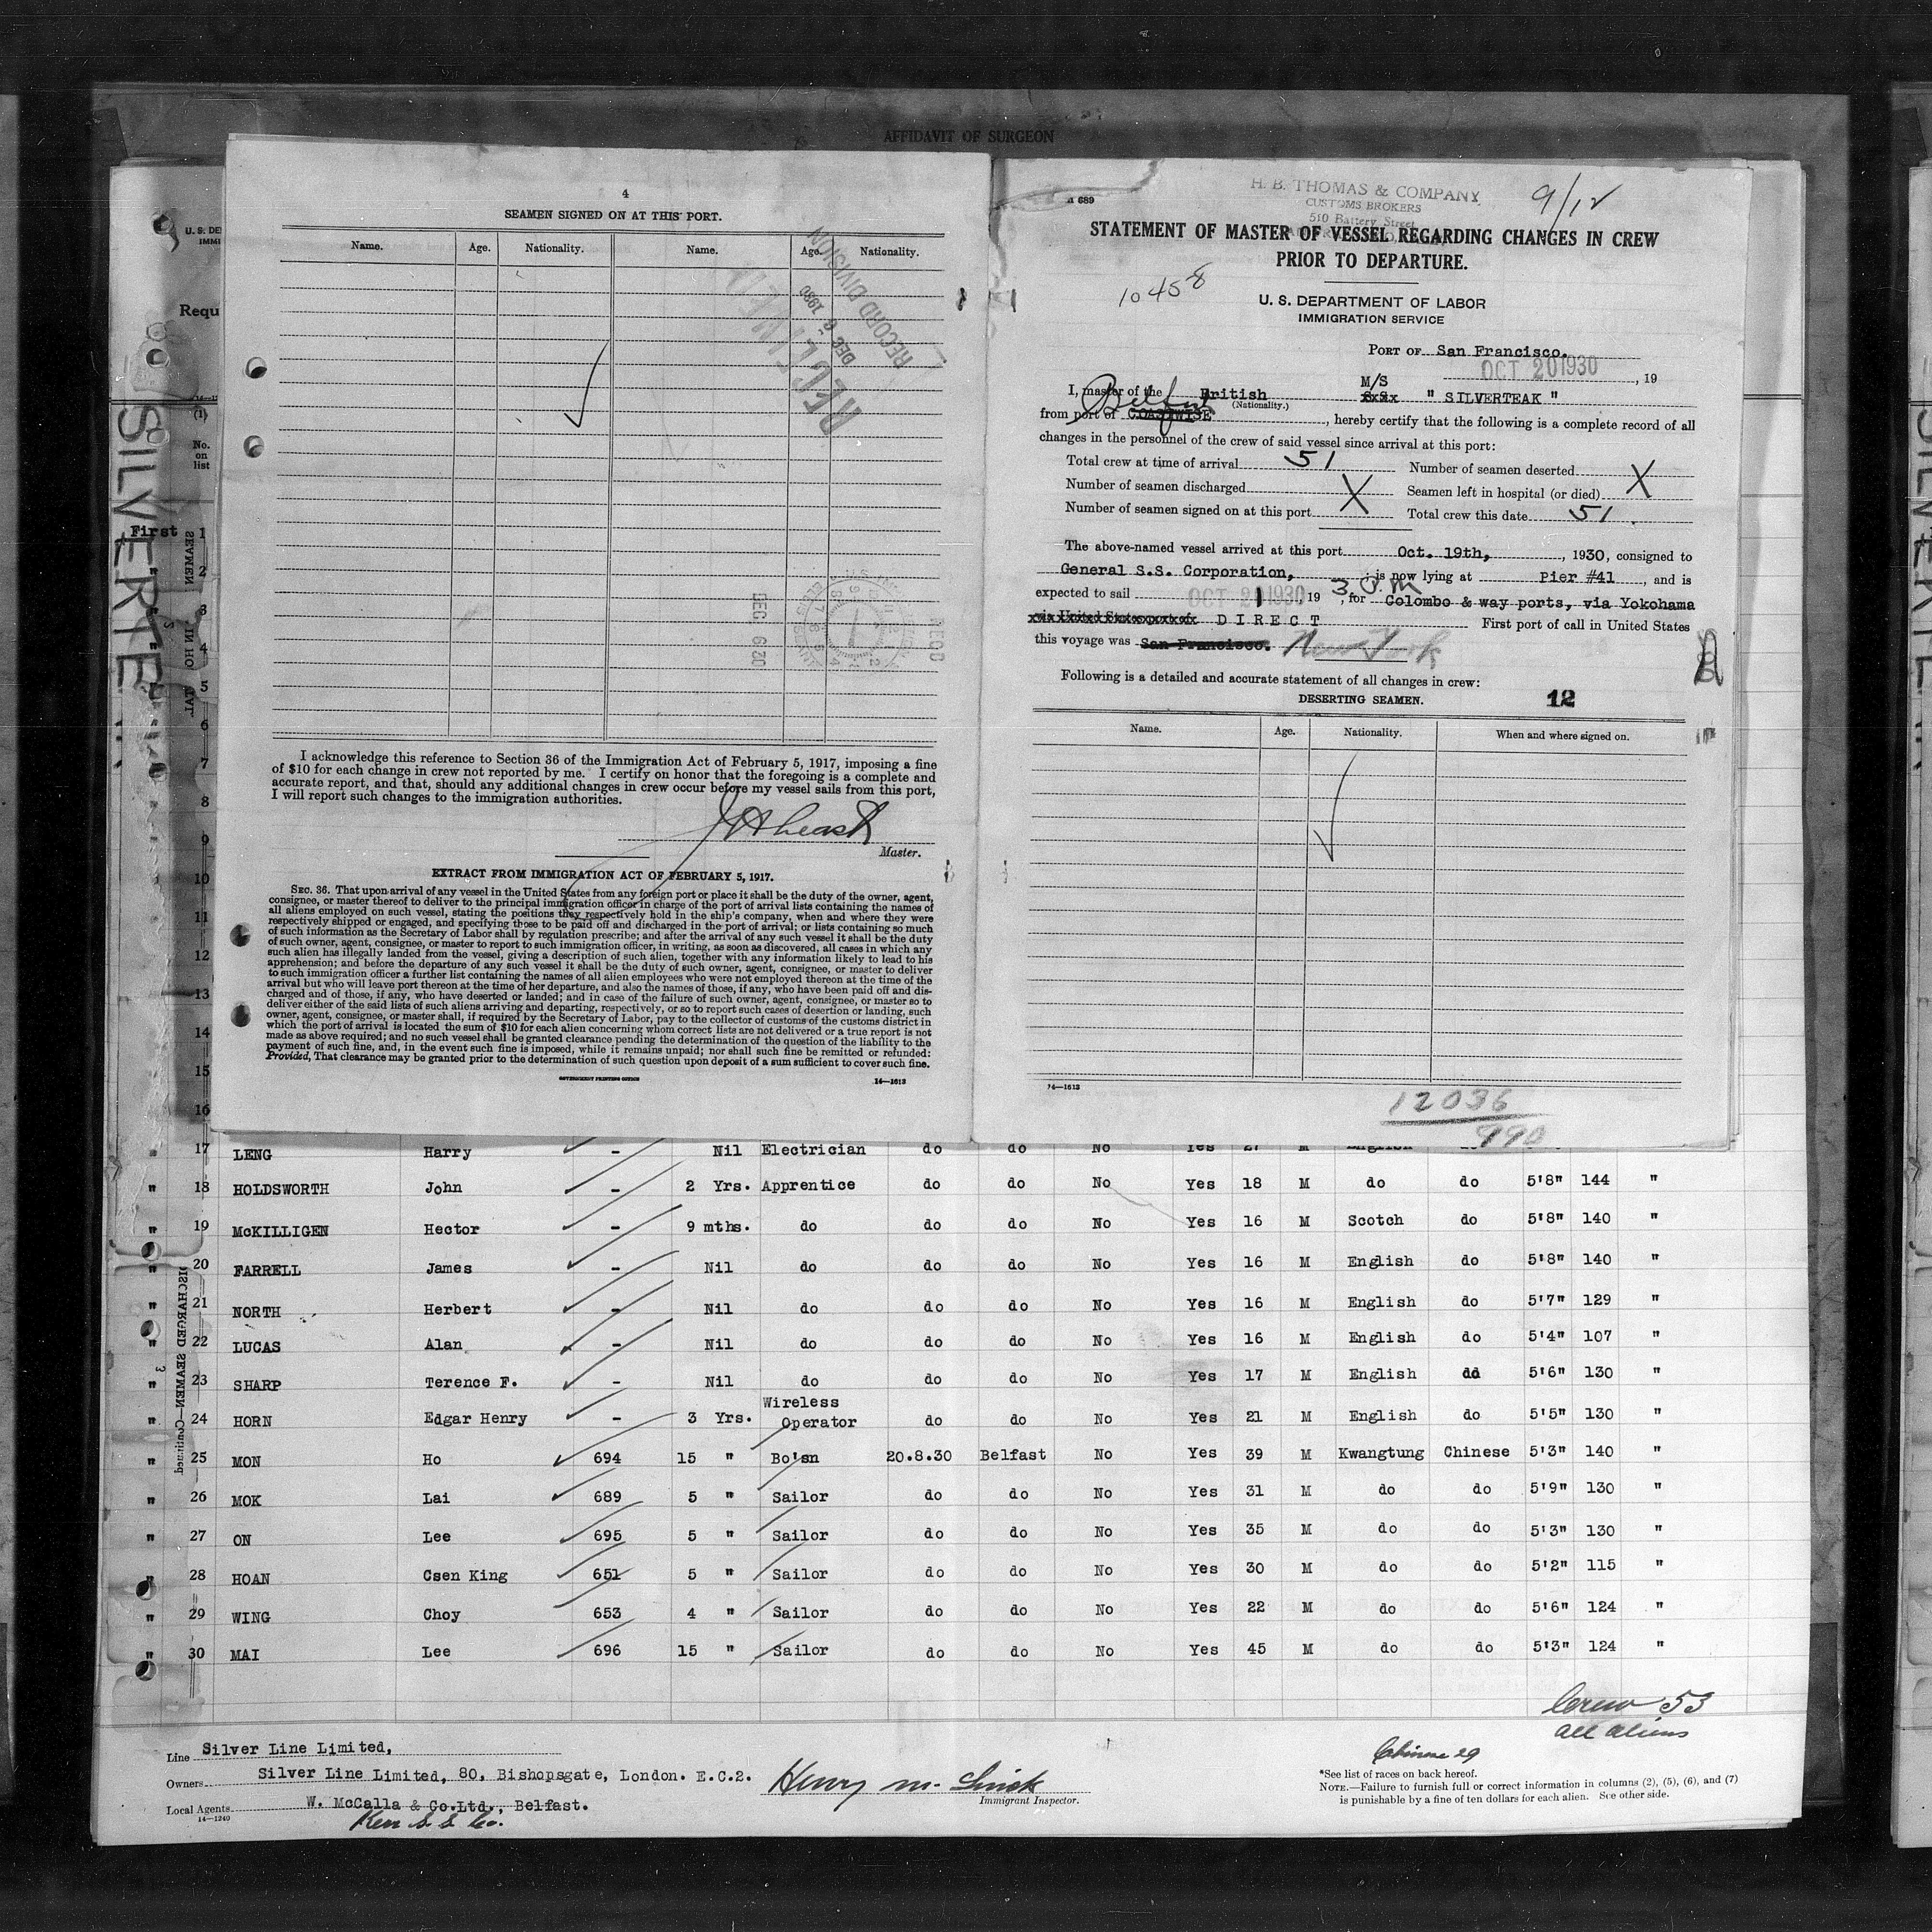 AFFIDAVIT OF SURGEON
4
SEAMEN SIGNED ON AT THIS PORT.
Name. Age. Nationality. Name. Age. Nationality.
RECEIVED
DEC 6 1930
RECORD DIVISION
DEC 6 30
REC'D
I acknowledge this reference to Section 36 of the Immigration Act of February 5, 1917, imposing a fine
of $10 for each change in crew not reported by me. I certify on honor that the foregoing is a complete and
accurate report, and that, should any additional changes in crew occur before my vessel sails from this port,
I will report such changes to the immigration authorities.
Master.
EXTRACT FROM IMMIGRATION ACT OF FEBRUARY 5, 1917.
SEC. 36. That upon arrival of any vessel in the United States from any foreign port or place it shall be the duty of the owner, agent,
consignee, or master thereof to deliver to the principal immigration officer in charge of the port of arrival lists containing the names of
all aliens employed on such vessel, stating the positions they respectively hold in the ship's company, when and where they were
respectively shipped or engaged, and specifying those to be paid off and discharged in the port of arrival; or lists containing so much
of such information as the Secretary of Labor shall by regulation prescribe; and after the arrival of any such vessel it shall be the duty
of such owner, agent, consignee, or master to report to such immigration officer, in writing, as soon as discovered, all cases in which any
such alien has illegally landed from the vessel, giving a description of such alien, together with any information likely to lead to his
apprehension; and before the departure of any such vessel it shall be the duty of such owner, agent, consignee, or master to deliver
to such immigration officer a further list containing the names of all alien employees who were not employed thereon at the time of the
arrival but who will leave port thereon at the time of her departure, and also the names of those, if any, who have been paid off and dis-
charged and of those, if any, who have deserted or landed; and in case of the failure of such owner, agent, consignee, or master so to
deliver either of the said lists of such aliens arriving and departing, respectively, or so to report such cases of desertion or landing, such
owner, agent, consignee, or master shall, if required by the Secretary of Labor, pay to the collector of customs of the customs district in
which the port of arrival is located the sum of $10 for each alien concerning whom correct lists are not delivered or a true report is not
made as above required; and no such vessel shall be granted clearance pending the determination of the question of the liability to the
payment of such fine, and, in the event such fine is imposed, while it remains unpaid; nor shall such fine be remitted or refunded:
Provided, That clearance may be granted prior to the determination of such question upon deposit of a sum sufficient to cover such fine.
GOVERNMENT PRINTING OFFICE 14—1613
689
H. B. THOMAS & COMPANY
CUSTOMS BROKERS
510 Battery Street
9/12
STATEMENT OF MASTER OF VESSEL REGARDING CHANGES IN CREW
PRIOR TO DEPARTURE.
10458
U. S. DEPARTMENT OF LABOR
IMMIGRATION SERVICE
PORT OF San Francisco.
OCT 20 1930, 19
I, master of the British M/S " SILVERTEAK "
(Nationality.)
from port of COASTWISE Belfast, hereby certify that the following is a complete record of all
changes in the personnel of the crew of said vessel since arrival at this port:
Total crew at time of arrival 51 Number of seamen deserted X
Number of seamen discharged X Seamen left in hospital (or died)
Number of seamen signed on at this port Total crew this date 51.
The above-named vessel arrived at this port Oct. 19th, , 1930, consigned to
General S.S. Corporation, ; is now lying at Pier #41, and is
expected to sail OCT 21 1930 19 3 P.M, for Colombo & way ports, via Yokohama
via United States ports of DIRECT First port of call in United States
this voyage was San Francisco. New York
Following is a detailed and accurate statement of all changes in crew:
DESERTING SEAMEN. 12
Name. Age. Nationality. When and where signed on.
14—1613
12036
990
U. S. DE
IMMI
Requ
(1)
No.
on
list
First
SILVERTE
SEAMEN IN HO TAL
1
2
3
4
5
6
7
8
9
10
11
12
13
14
15
16
DISCHARGED SEAMEN—Continued
3
17 LENG Harry - Nil Electrician do do No Yes 27 M English do
" 18 HOLDSWORTH John - 2 Yrs. Apprentice do do No Yes 18 M do do 5'8" 144 "
" 19 McKILLIGEN Hector - 9 mths. do do do No Yes 16 M Scotch do 5'8" 140 "
" 20 FARRELL James - Nil do do do No Yes 16 M English do 5'8" 140 "
" 21 NORTH Herbert - Nil do do do No Yes 16 M English do 5'7" 129 "
" 22 LUCAS Alan - Nil do do do No Yes 16 M English do 5'4" 107 "
" 23 SHARP Terence F. - Nil do do do No Yes 17 M English do 5'6" 130 "
" 24 HORN Edgar Henry - 3 Yrs. Wireless Operator do do No Yes 21 M English do 5'5" 130 "
" 25 MON Ho 694 15 " Bo'sn 20.8.30 Belfast No Yes 39 M Kwangtung Chinese 5'3" 140 "
" 26 MOK Lai 689 5 " Sailor do do No Yes 31 M do do 5'9" 130 "
" 27 ON Lee 695 5 " Sailor do do No Yes 35 M do do 5'3" 130 "
" 28 HOAN Csen King 651 5 " Sailor do do No Yes 30 M do do 5'2" 115 "
" 29 WING Choy 653 4 " Sailor do do No Yes 22 M do do 5'6" 124 "
" 30 MAI Lee 696 15 " Sailor do do No Yes 45 M do do 5'3" 124 "
Crew 53
all aliens
Chinese 29
Line Silver Line Limited,
Owners Silver Line Limited, 80, Bishopsgate, London. E.C.2.
Local Agents W. McCalla & Co.Ltd., Belfast.
14—1240
Kerr S. S. Co.
Henry M.
Immigrant Inspector.
*See list of races on back hereof.
NOTE.—Failure to furnish full or correct information in columns (2), (5), (6), and (7)
is punishable by a fine of ten dollars for each alien. See other side.